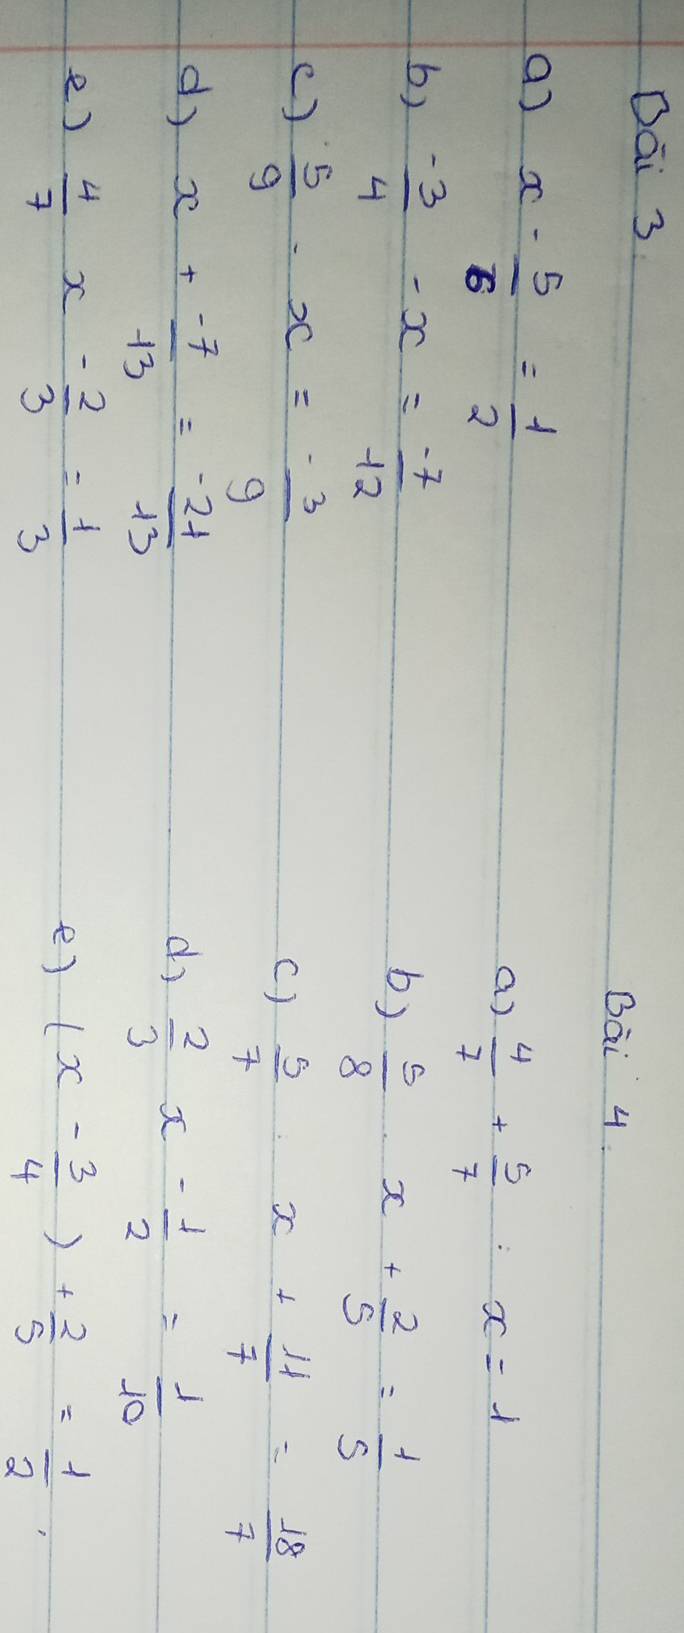 Bài 3
a) x - 5/6 = 1/2
b) -3/4 - x = -7/12
c) 5/9 . x = -3/9
d) x + -7/13 = -21/13
e) 4/7 x - 2/3 = 1/3
Bài 4
a) 4/7 + 5/7 : x = 1
b) 5/8 . x + 2/5 = 1/5
c) 5/7 . x + 11/7 = 18/7
d) 2/3 x - 1/2 = 1/10
e) (x - 3/4) + 2/5 = 1/2.